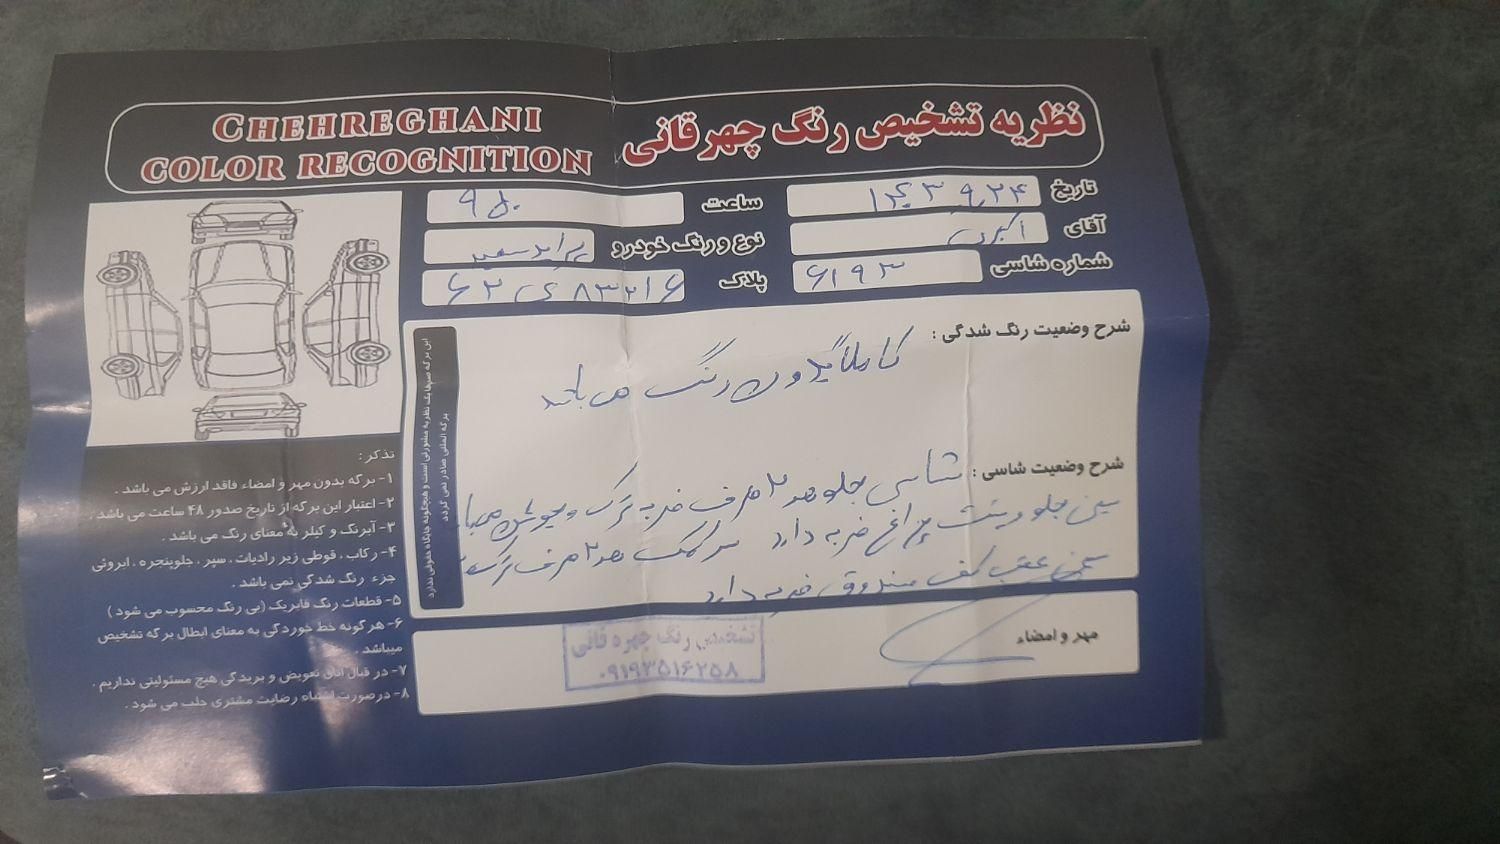 CHEHREGHANI
COLOR RECOGNITION
نظریه تشخیص رنگ چهرقانی
تاریخ ۱۴۰۳ ۹٫۲۴
ساعت ۹ ۵۰
آقای اکبری
نوع و رنگ خودرو پراید سفید
شماره شاسی ۶۱۹۳
پلاک ۶۲ ی ۸۳۲۱۶
شرح وضعیت رنگ شدگی :
کاملا بدون رنگ می باشد
شرح وضعیت شاسی : شاسی جلو هر ۲ طرف ضربه ترک و جوش
سینی جلو و پشت چراغ ضربه دارد سرکمک هر ۲ طرف ترک
سینی عقب کف صندوق ضربه دارد
این برگه صرفا یک نظریه مشورتی است و هیچگونه جایگاه حقوقی ندارد
برگه المثنی صادر نمی گردد
مهر و امضاء
تشخیص رنگ چهره قانی
۰۹۱۹۳۵۱۶۲۵۸
تذکر :
۱- برگه بدون مهر و امضاء فاقد ارزش می باشد .
۲- اعتبار این برگه از تاریخ صدور ۴۸ ساعت می باشد .
۳- آبرنگ و کیلر به معنای رنگ می باشد .
۴- رکاب ، قوطی زیر رادیات ، سپر ، جلوپنجره ، ابروئی
جزء رنگ شدگی نمی باشد .
۵- قطعات رنگ فابریک (بی رنگ محسوب می شود )
۶- هرگونه خط خوردگی به معنای ابطال برگه تشخیص
میباشد .
۷- در قبال اتاق تعویض و بریدگی هیچ مسئولیتی نداریم .
۸- درصورت اشتباه رضایت مشتری جلب می شود .